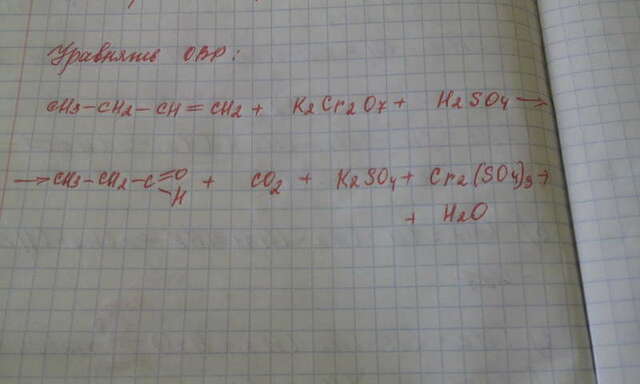 Уравнять ОВР:
CH3-CH2-CH=CH2 + K2Cr2O7 + H2SO4 →
→ CH3-CH2-C=O + CO2 + K2SO4 + Cr2(SO4)3 +
-H
+ H2O